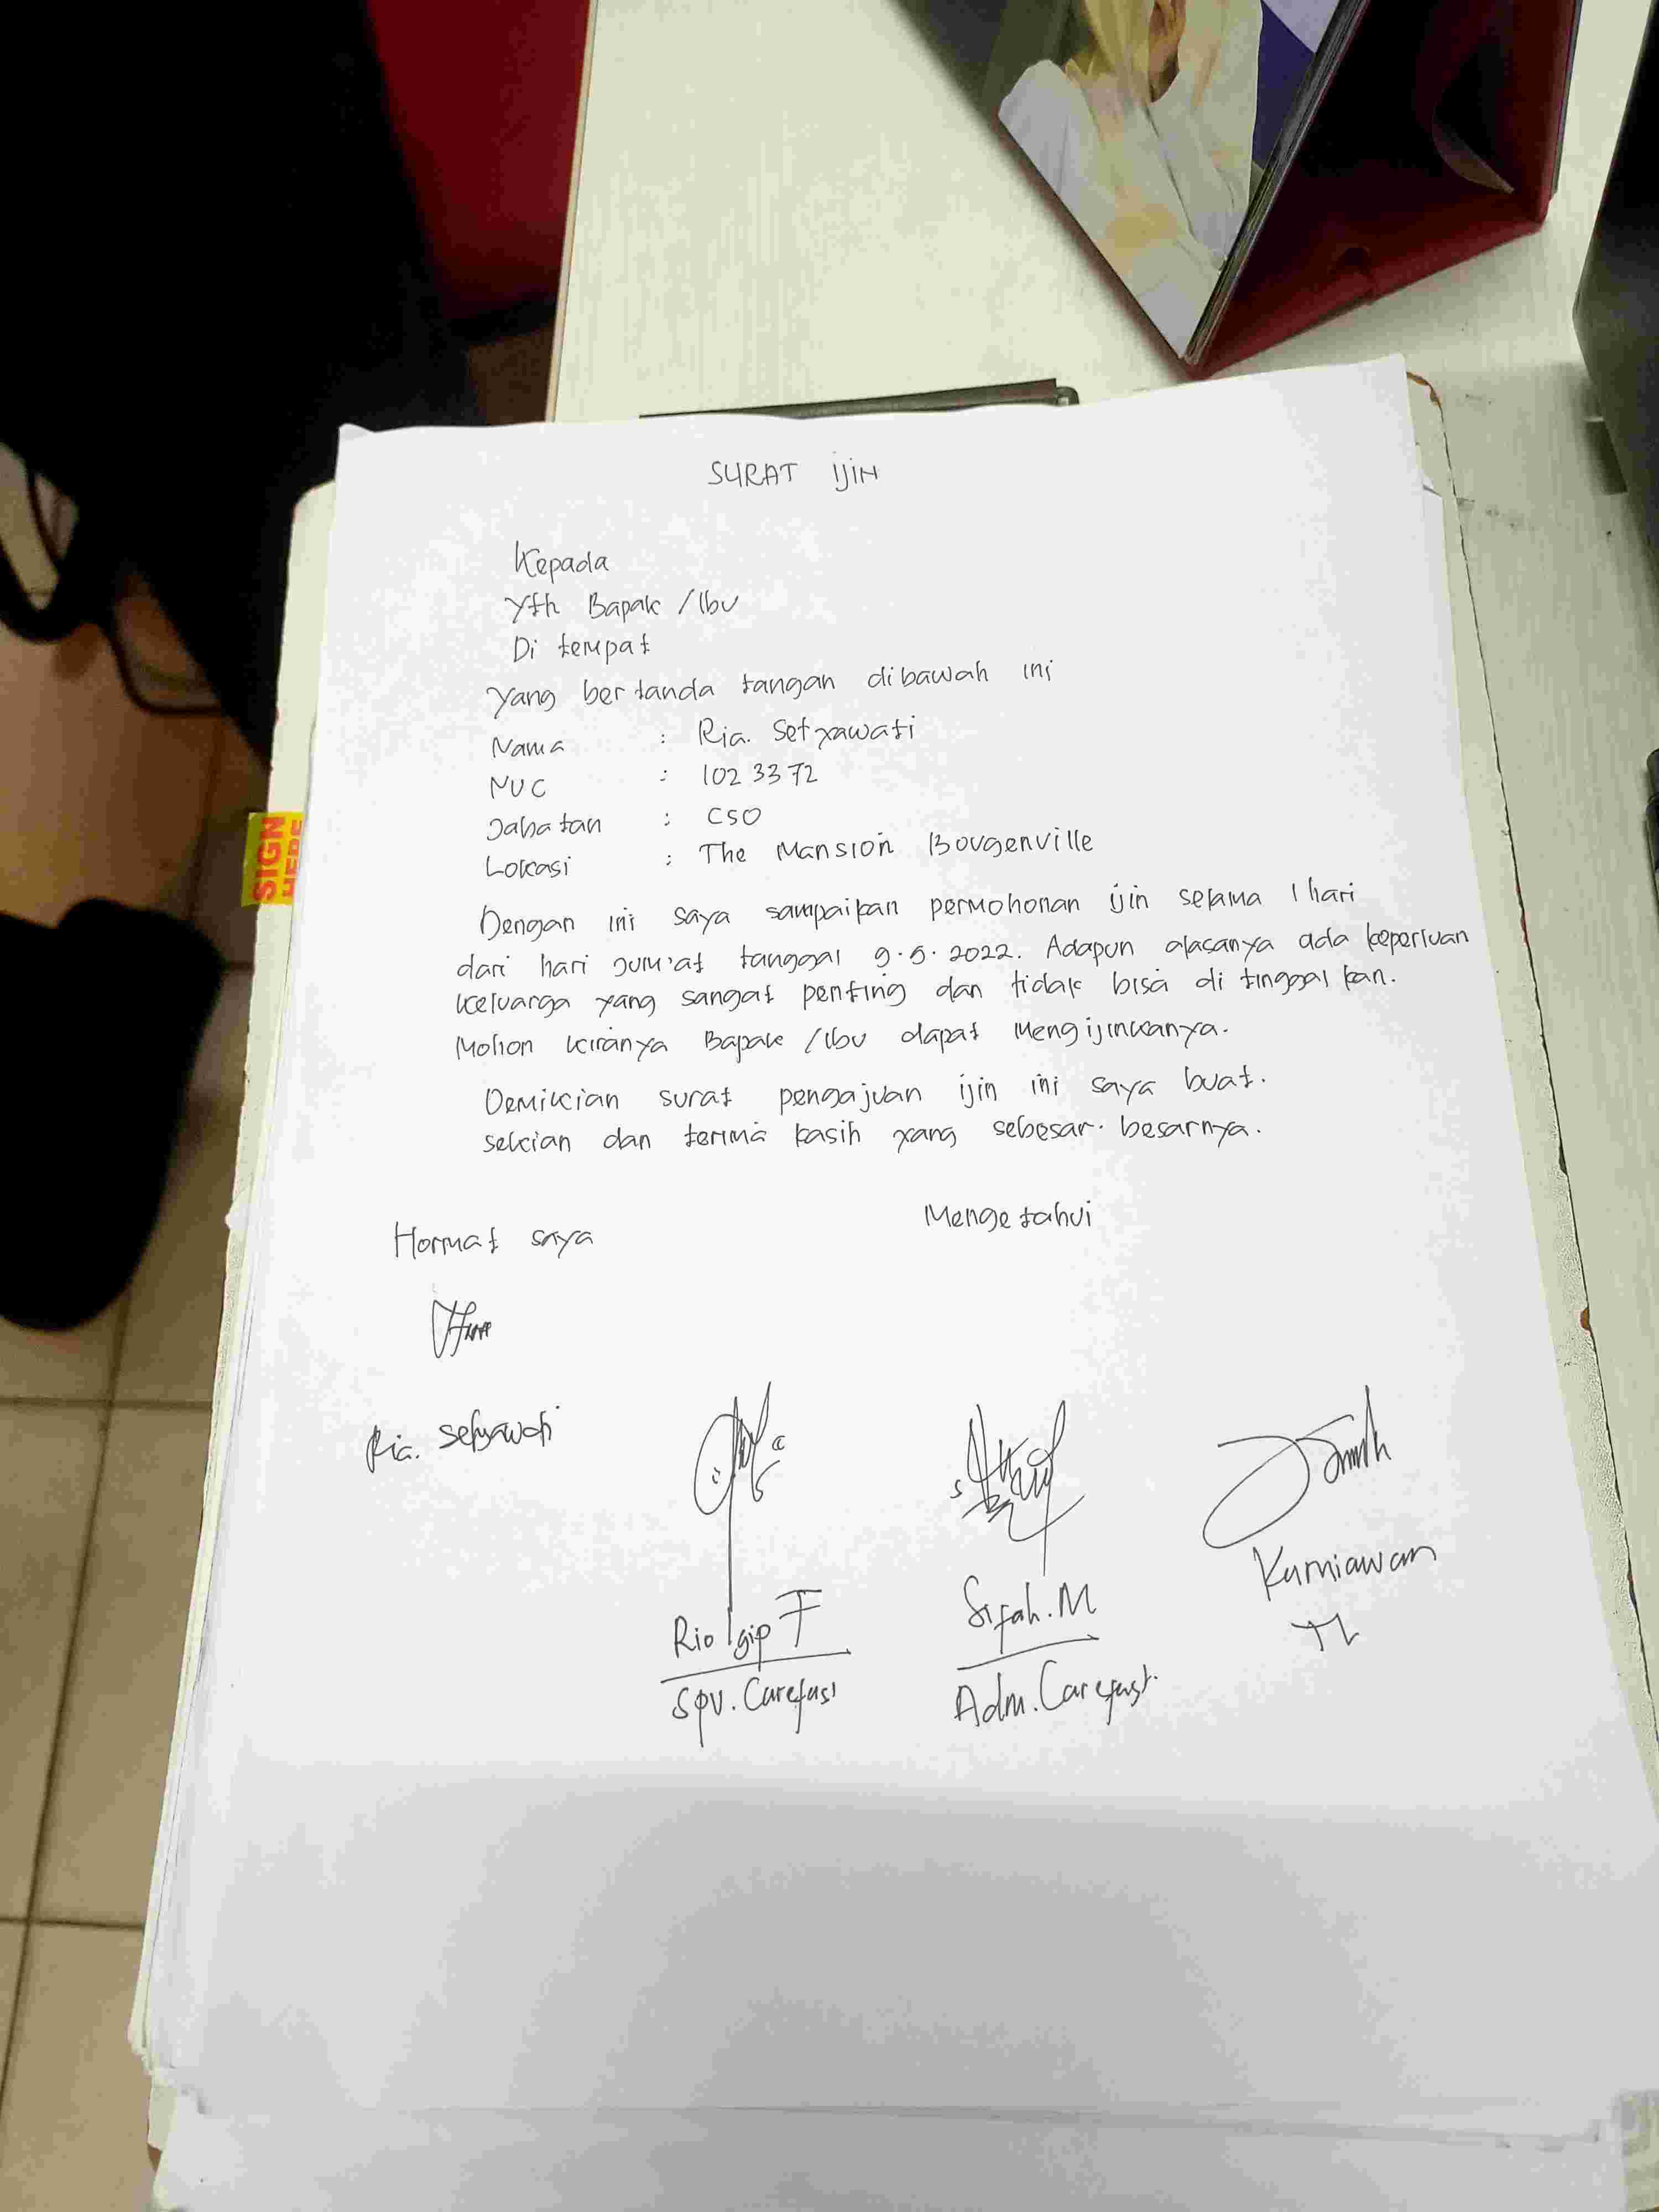 SURAT ijiN
Kepada
Yth Bapak / Ibu
Di tempat
Yang bertanda tangan dibawah ini
Nama : Ria. Setyawati
NUC : 102 33 72
Jabatan : CSO
Lokasi : The Mansion Bougenville
Dengan ini saya sampaikan permohonan ijin selama 1 hari
dari hari Jum'at tanggal 2022. Adapun alasanya ada keperluan
keluarga yang sangat penting dan tidak bisa di tinggal kan.
Mohon kiranya Bapak / Ibu dapat Mengijinkanya.
Demikian surat pengajuan ijin ini saya buat.
sekian dan terima kasih yang sebesar. besarnya.
Hormat saya
Mengetahui
Ria. Setyawati
Rio gip F
Sifah. M
Kurniawan
TL
Spv. Carefast
Adm. Carefast.
SIGN
HERE